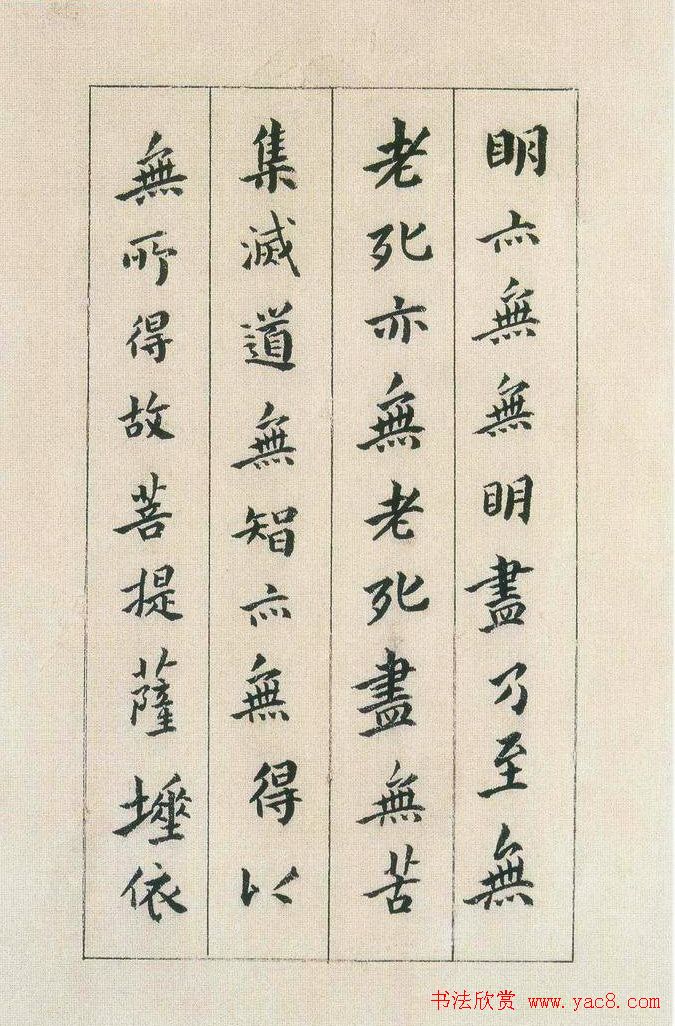 明亦無無明盡乃至無
老死亦無老死盡無苦
集滅道無智亦無得以
無所得故菩提薩埵依
书法欣赏 www.yac8.com